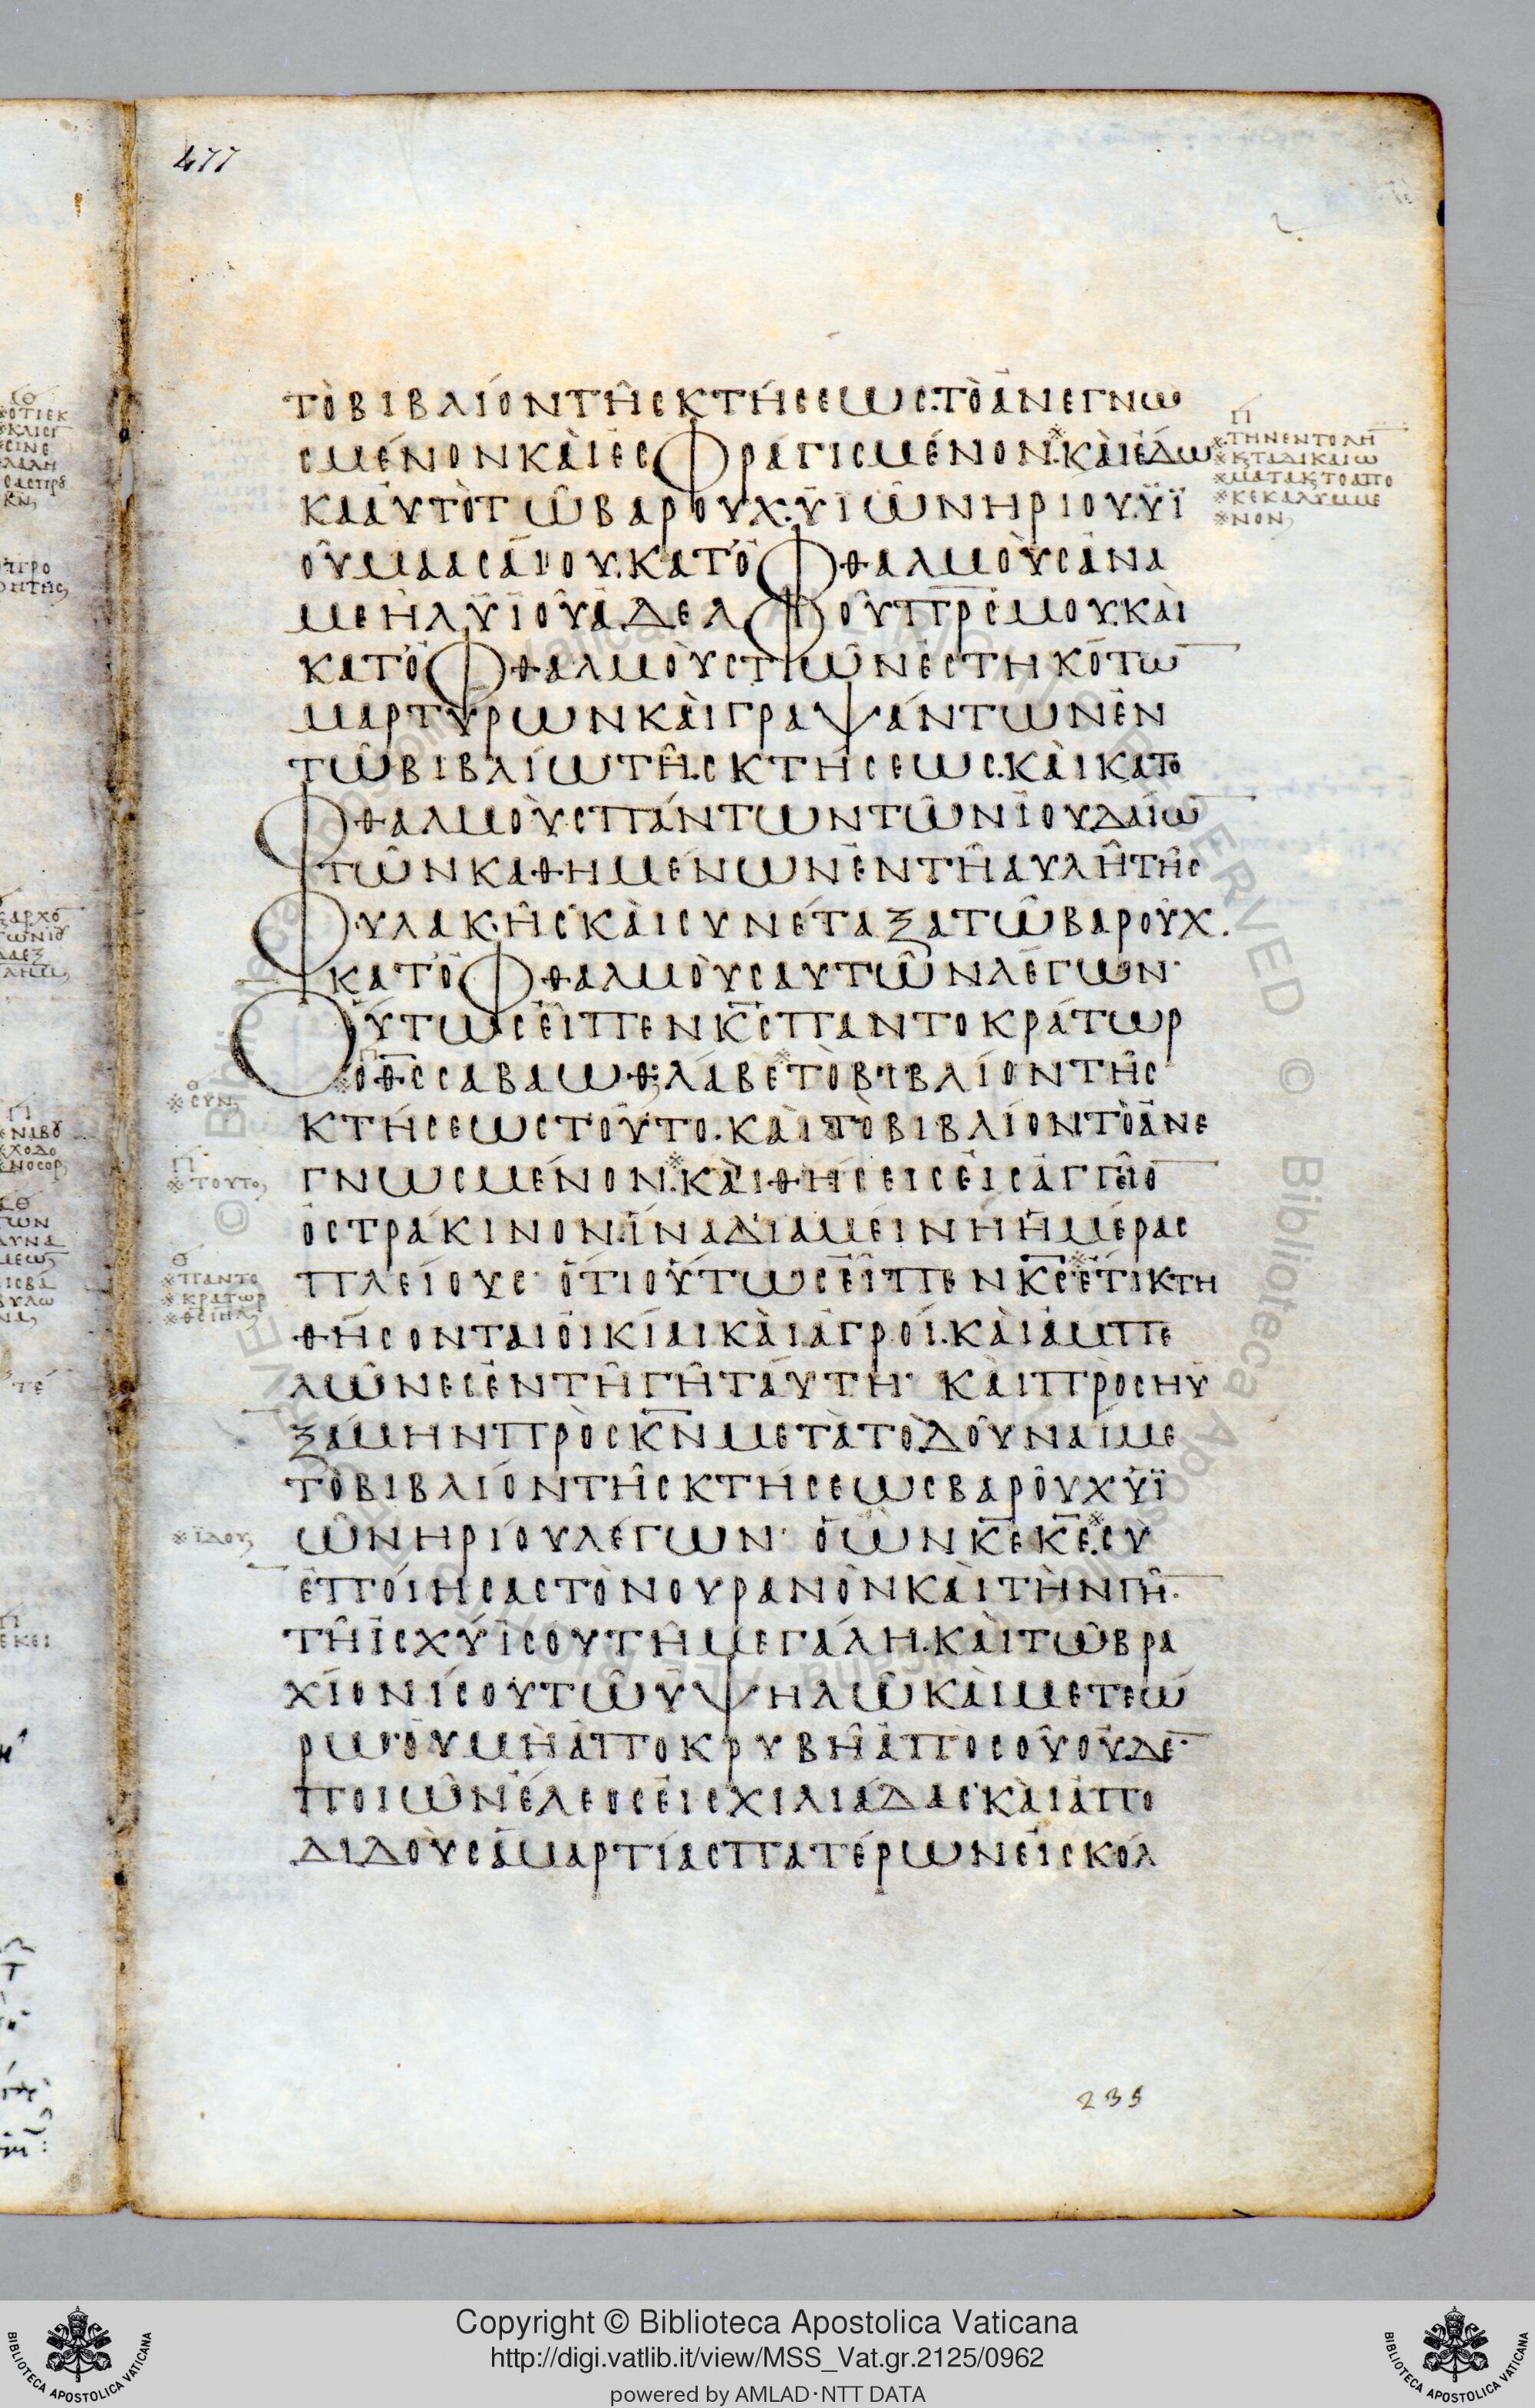 477
ΤῸΒΙΒΛΊΟΝΤΗ͂ϹΚΤΉϹΕΩϹ·ΤῸἈΝΕΓΝΩ
ϹΜΈΝΟΝΚΑῚἘϹΦΡΑΓΙϹΜΈΝΟΝ·※ΚΑῚἜΔΩ
ΚΑΑΥ̓ΤῸΤΩ͂ΒΑΡΟΥΧ·ΫΙΩ͂ΝΗΡΙΟΥ·ΫΪ
ΟΥ͂ΜΑΑϹΑΊΟΥ·ΚΑΤΌΦΘΑΛΜΟῪϹἈΝΑ
ΜΕΗΛΫΪΟΥ͂ἈΔΕΛΦΟΥ͂ΠΡ̅Ϲ̅ΜΟΥ·ΚΑῚ
ΚΑΤΌΦΘΑΛΜΟῪϹΤΩ͂ΝἙϹΤΗΚΌΤΩ̅
ΜΑΡΤΎΡΩΝΚΑῚΓΡΑΨΆΝΤΩΝἘΝ
ΤΩ͂ΒΙΒΛΊΩΤΗ͂ϹΚΤΉϹΕΩϹ·ΚΑῚΚΑΤΟ
ΦΘΑΛΜΟῪϹΠΆΝΤΩΝΤΩ͂ΝΪΟΥΔΑΊΩ̅
ΤΩ͂ΝΚΑΘΗΜΈΝΩΝἘΝΤΗ͂ΑΥΛΗ͂ΤΗ͂Ϲ
ΦΥΛΑΚΗ͂Ϲ·ΚΑῚϹΥΝΈΤΑΞΑΤΩ͂ΒΑΡΟΎΧ·
ΚΑΤΌΦΘΑΛΜΟῪϹΑΥΤΩ͂ΝΛΈΓΩΝ·
ΟΎΤΩϹΕἾΠΕΝΚ̅Ϲ̅ΠΑΝΤΟΚΡΆΤΩΡ
※ΟΘ̅Ϲ̅ϹΑΒΑΩΘ·ΛΆΒΕ※ΤῸΒΙΒΛΊΟΝΤΗ͂Ϲ
ΚΤΉϹΕΩϹΤΟΥ͂ΤΟ·ΚΑῚΤῸΒΙΒΛΊΟΝΤῸἈΝΕ
ΓΝΩϹΜΈΝΟΝ·※ΚΑῚΘΉϹΕΙϹΕἸϹἈΓΓΕΙ͂Ο̅
ὈϹΤΡΆΚΙΝΟΝ·ἽΝΑΔΙΑΜΕΊΝΗἩΜΈΡΑϹ
ΠΛΕΊΟΥϹ· ὍΤΙΟὝΤΩϹΕἾΠΕΝΚ̅Ϲ̅※ἜΤΙΚΤΗ
ΘΉϹΟΝΤΑΙΟἸΚΊΑΙΚΑῚἈΓΡΟΊ·ΚΑῚἈΜΠΕ
ΛΩ͂ΝΕϹἘΝΤΗ͂ΓΗ͂ΤΑΎΤΗ· ΚΑῚΠΡΟϹΗΥ
ΞΆΜΗΝΠΡῸϹΚ̅Ν̅ΜΕΤᾺΤῸΔΟΥ͂ΝΑΊΜΕ
ΤῸΒΙΒΛΊΟΝΤΗ͂ϹΚΤΉϹΕΩϹΒΑΡΟῪΧΫΪ
ΩΝΗΡΊΟΥΛΈΓΩΝ· ὉὪΝΚ̅Ε̅Κ̅Ε̅·※ϹῪ
ἘΠΟΊΗϹΑϹΤῸΝΟΥΡΑΝῸΝΚΑῚΤῊΝΓΗ̅·
ΤΗ͂ΪϹΧΎΪϹΟΥΤΗ͂ΜΕΓΆΛΗ·ΚΑῚΤΩ͂ΒΡΑ
ΧΊΟΝΊϹΟΥΤΩ͂ΫΨΗΛΩ͂ΚΑῚΜΕΤΕΏ
ΡΩ·ΟΥ̓ΜῊἈΠΟΚΡΥΒΗ͂ἈΠῸϹΟΥ͂ΟΥ̓ΔΕ̅·
ΠΟΙΩ͂ΝἜΛΕΟϹΕἸϹΧΙΛΙΆΔΑϹ·ΚΑῚἈΠΟ
ΔΙΔΟῪϹἉΜΑΡΤΊΑϹΠΑΤΈΡΩΝΕἸϹΚΌΛ
Π
※ΤΗΝΕΝΤΟΛΗ̅
※ΚϚΤΑΔΙΚΑΙΩ
※ΜΑΤΑΚϚΤΟΑΠΟ
※ΚΕΚΑΛΥΜΜΕ
※ΝΟΝ
Θ
※ϹΥΝ
Π
※ΤΟΥΤΟ
Θ
※ΠΑΝΤΟ
※ΚΡΑΤΩΡ
※ΘϹΙΗΛ
※ΪΔΟΥ
235
Copyright © Biblioteca Apostolica Vaticana
http://digi.vatlib.it/view/MSS_Vat.gr.2125/0962
powered by AMLAD·NTT DATA
BIBLIOTECA APOSTOLICA VATICANA
BIBLIOTECA APOSTOLICA VATICANA